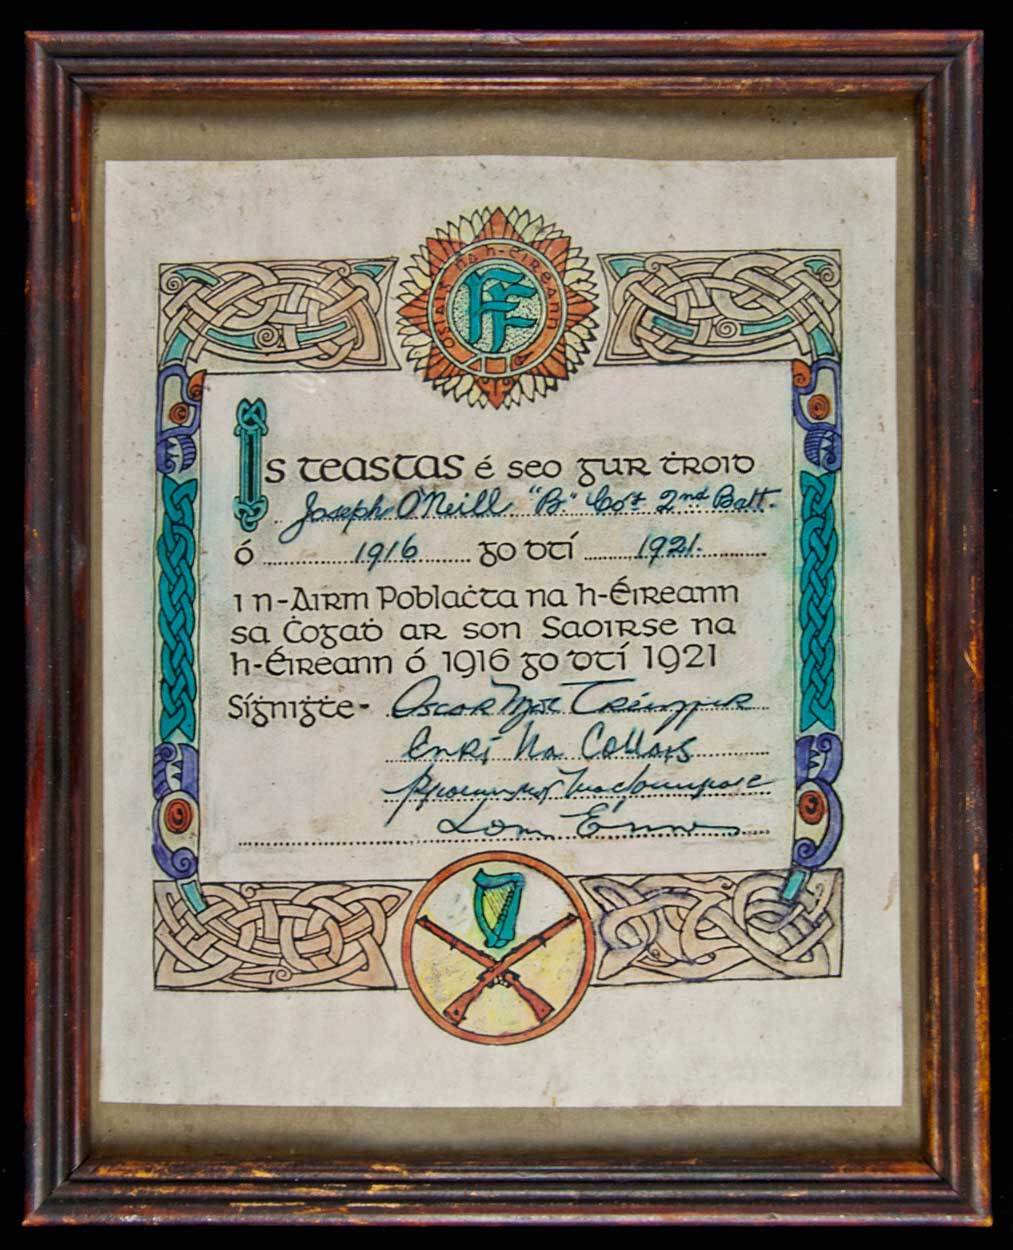 Óglaiġ na h-Éireann
FF
Is teastas é seo gur ṫroid
Joseph O'Neill "B" Coy 2nd Batt.
ó 1916 go dtí 1921.
i n-Airm Poblaċta na h-Éireann
sa Ċogaḋ ar son Saoirse na
h-Éireann ó 1916 go dtí 1921
Síġniġṫe- Oscar Mac Tréinḟir
Enrí Ua Collais
Tom Ennis